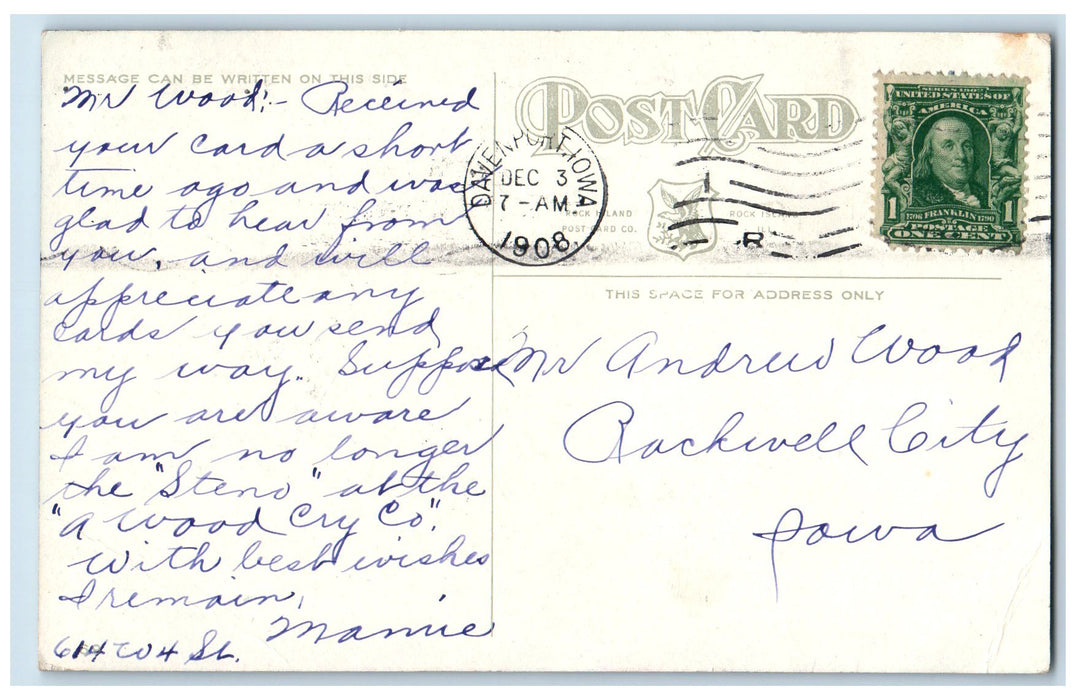 MESSAGE CAN BE WRITTEN ON THIS SIDE
Mr Wood:- Received
your card a short
time ago and was
glad to hear from
you, and will
appreciate any
cards you send
my way. Suppose
you are aware
I am no longer
the "Steno" at the
"A Wood Cry Co".
With best wishes
I remain,
Mamie
614 W 4 St.
POST CARD
DAVENPORT, IOWA
DEC 3
7-AM
1908
ROCK ISLAND
POST CARD CO.
ROCK ISLAND
ILL
R
SERIES 1902
UNITED STATES OF
AMERICA
1 1
1706 FRANKLIN 1790
POSTAGE
ONE CENT
THIS SPACE FOR ADDRESS ONLY
Mr Andrew Wood
Rockwell City
Iowa